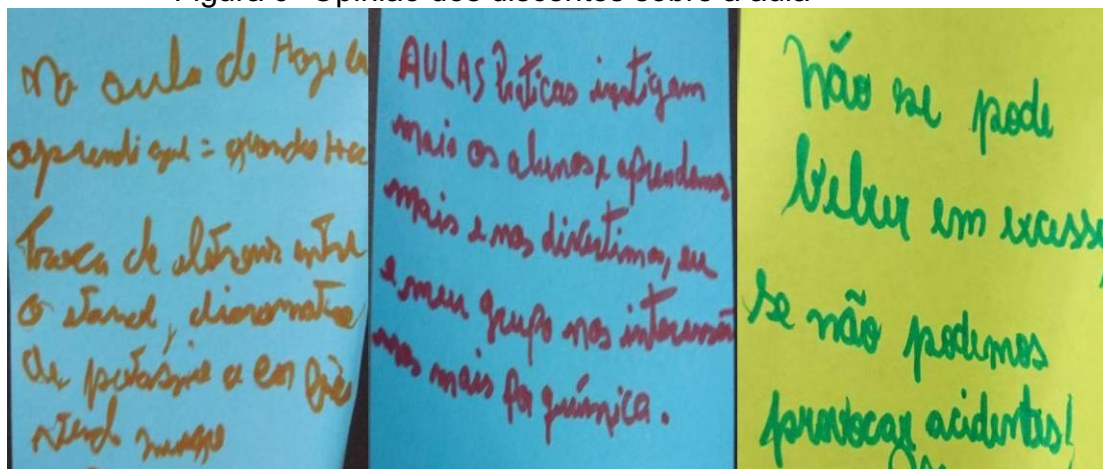 Figura 6- Opinião dos discentes sobre a aula
na aula de Hoje eu
aprendi que = quando Hoe
Troca de elétrons entre
o etanol, dicromato
de potássio a em
AULAS Práticas instigam
mais os alunos e aprendemos
mais e nos divertimos, eu
e meu grupo nos interessa
mos mais por química.
Não se pode
beber em excesso,
se não podemos
provocar acidentes!